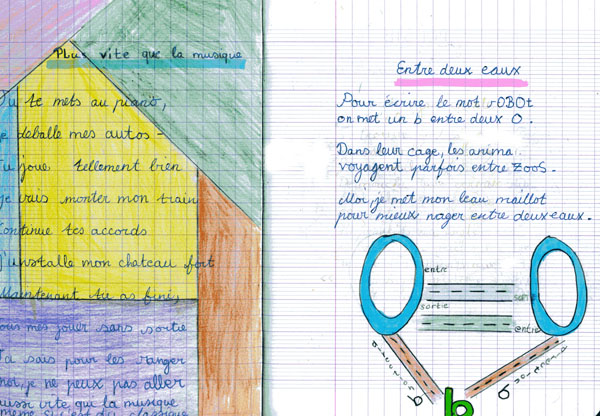 Plus vite que la musique
Tu te mets au piano,
je deballe mes autos -
Tu joue tellement bien
je vais monter mon train
Continue tes accords
J'installe mon chateau fort
Maintenant tu as fini,
mes jouer sans sortie
sais pour les ranger
moi, je ne peux pas aller
aussi vite qu la musique
même si c'est du classique
Entre deux eaux
Pour écrire le mot rOBOt
on met un b entre deux O.
Dans leur cage, les anima
voyagent parfois entre ZooS.
Moi, je met mon beau maillot
pour mieux nager entre deux eaux.
entre
sortie
sortie
entre
b
b
b